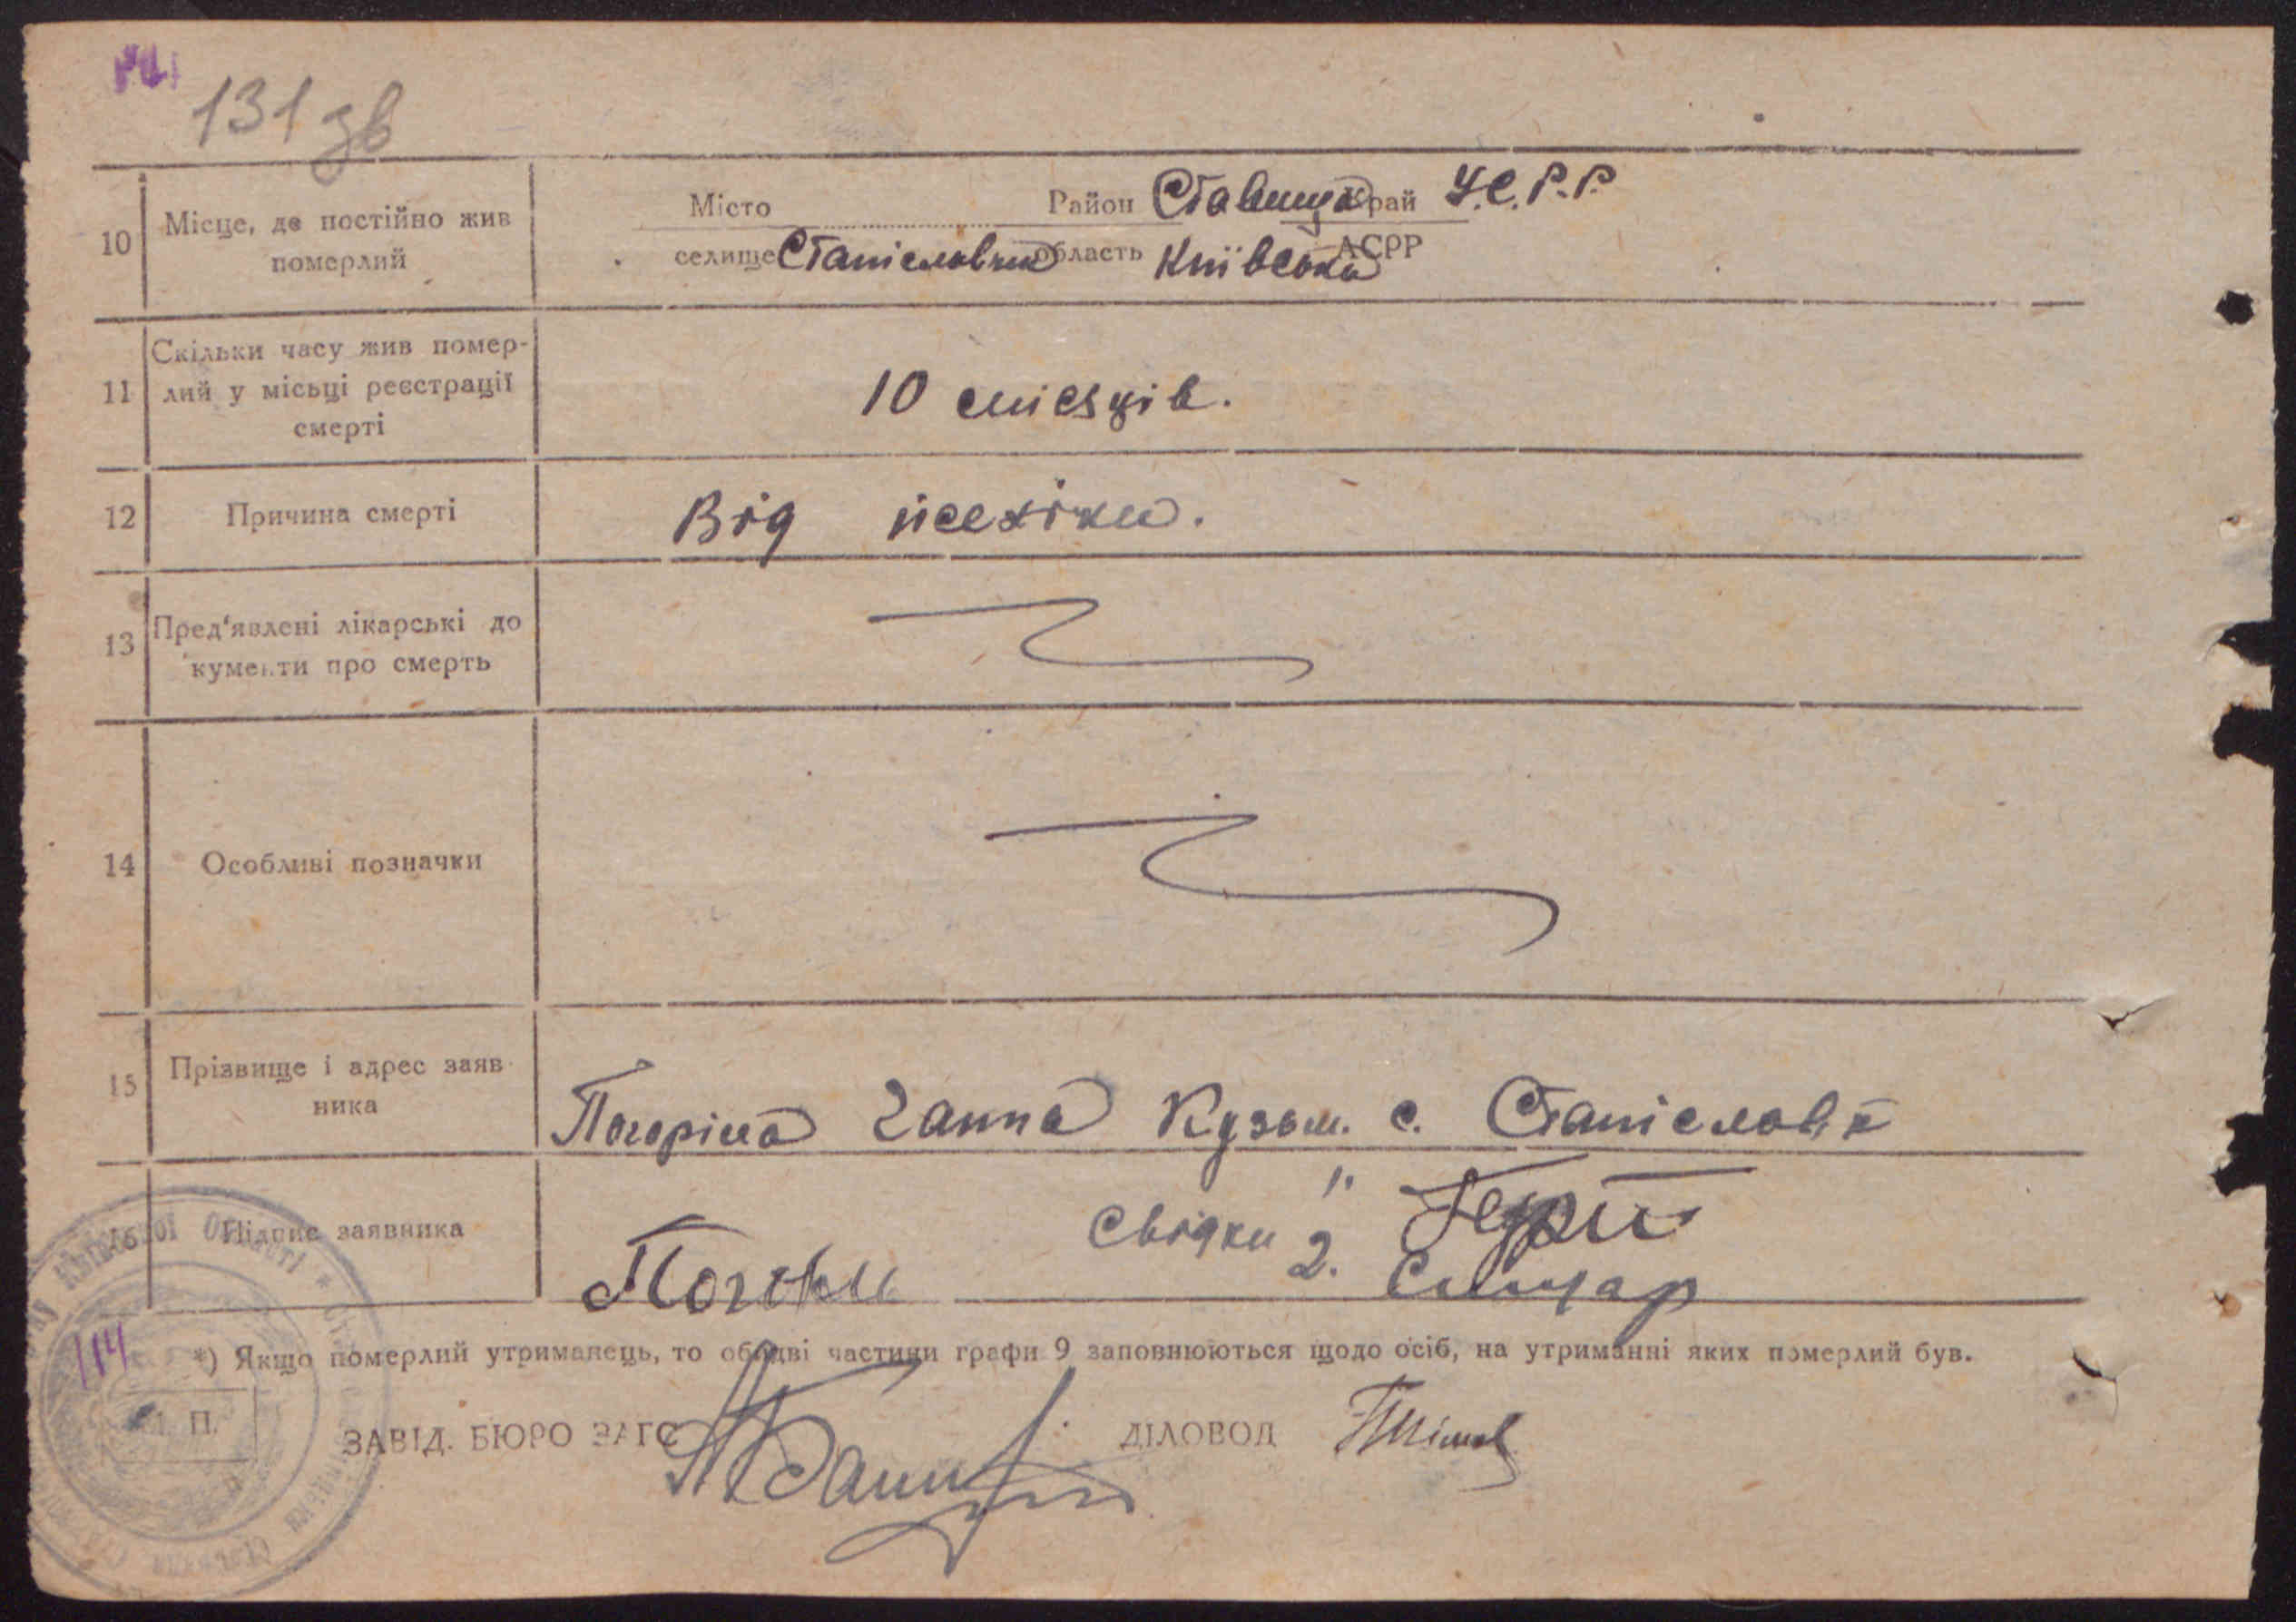 131 зв
Місто Район Ставищ. край У.С.Р.Р.
10 Місце, де постійно жив померлий
селище Станіславчик область Київська АСРР
11 Скільки часу жив помер-
лий у місьці реєстрації
смерті
10 місяців.
12 Причина смерті
Від
13 Пред'явлені лікарські до
кументи про смерть
14 Особливі позначки
15 Прізвище і адрес заяв
ника
Погоріла Ганна Кузьм. с. Станіславчк
16 Підпис заявника
Свідки 1.
2. Слюсар
114
*) Якщо померлий утриманець, то обидві частини графи 9 заповнюються щодо осіб, на утриманні яких померлий був.
М. П.
ЗАВІД. БЮРО ЗАГС ДІЛОВОД